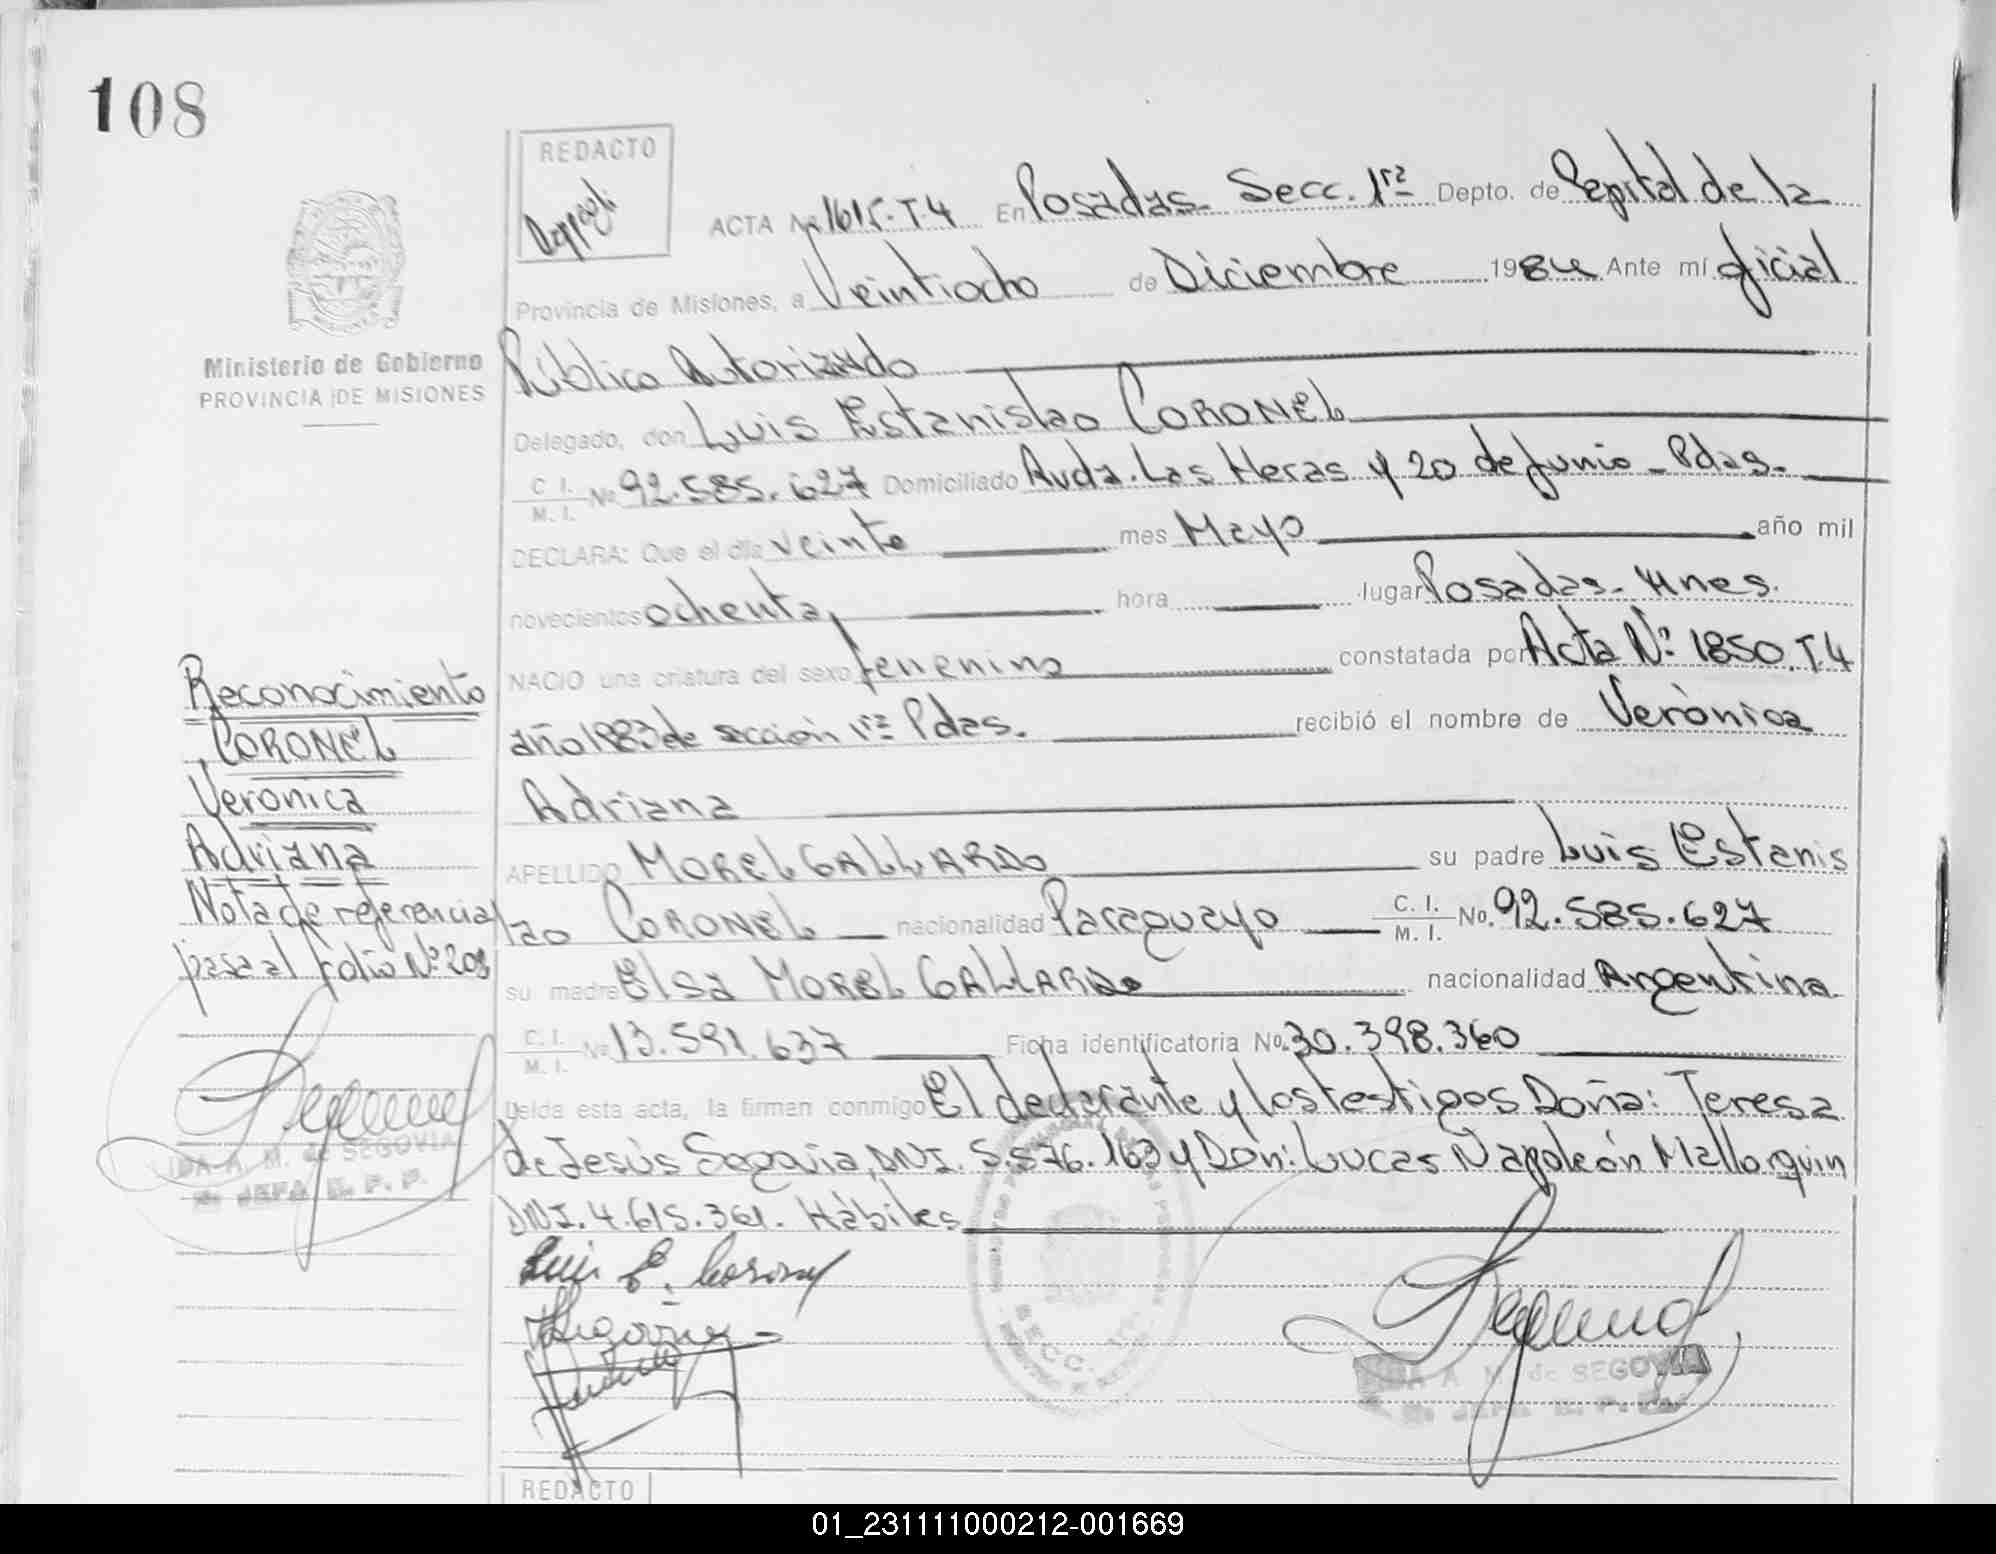 108
REDACTO
ACTA Nº 1615.T4 En Posadas- Secc. 1ra Depto. de Capital de la
Provincia de Misiones, a Veintiocho de Diciembre 1984 Ante mí oficial
Público Autorizado
Delegado, don Luis Estanislao CORONEL
C. I. M. I. No 92.585.627 Domiciliado Avda. Las Heras y 20 de Junio - Pdas.
DECLARA: Que el día veinte mes Mayo año mil
novecientos ochenta, hora lugar Posadas- Mnes.
NACIO una criatura del sexo femenino constatada por Acta Nº 1850.T4
año 1983 de sección 1ra Pdas. recibió el nombre de Verònica
Adriana
APELLIDO MOREL GALLARDO su padre Luis Estanis
lao CORONEL nacionalidad Paraguayo C. I. M. I. No. 92.585.627
su madre Elsa MOREL GALLARDO nacionalidad Argentina
C. I. M. I. No 13.591.637 Ficha identificatoria No. 30.398.360
Leída esta acta, la firman conmigo El declarante y los testigos Doña: Teresa
de Jesús Segovia, DNI. 5.576.163 y Don: Lucas Napoleón Mallorquin
DNI. 4.615.361. Hàbiles
Luis E. Coronel
SECC. 1ra.
IDA A. M. de SEGOVIA
JEFA
Ministerio de Gobierno
PROVINCIA DE MISIONES
Reconocimiento
CORONEL
Veronica
Adriana
Nota de referencia
pasa al folio Nº 208
IDA A. M. de SEGOVIA
JEFA
REDACTO
01_231111000212-001669